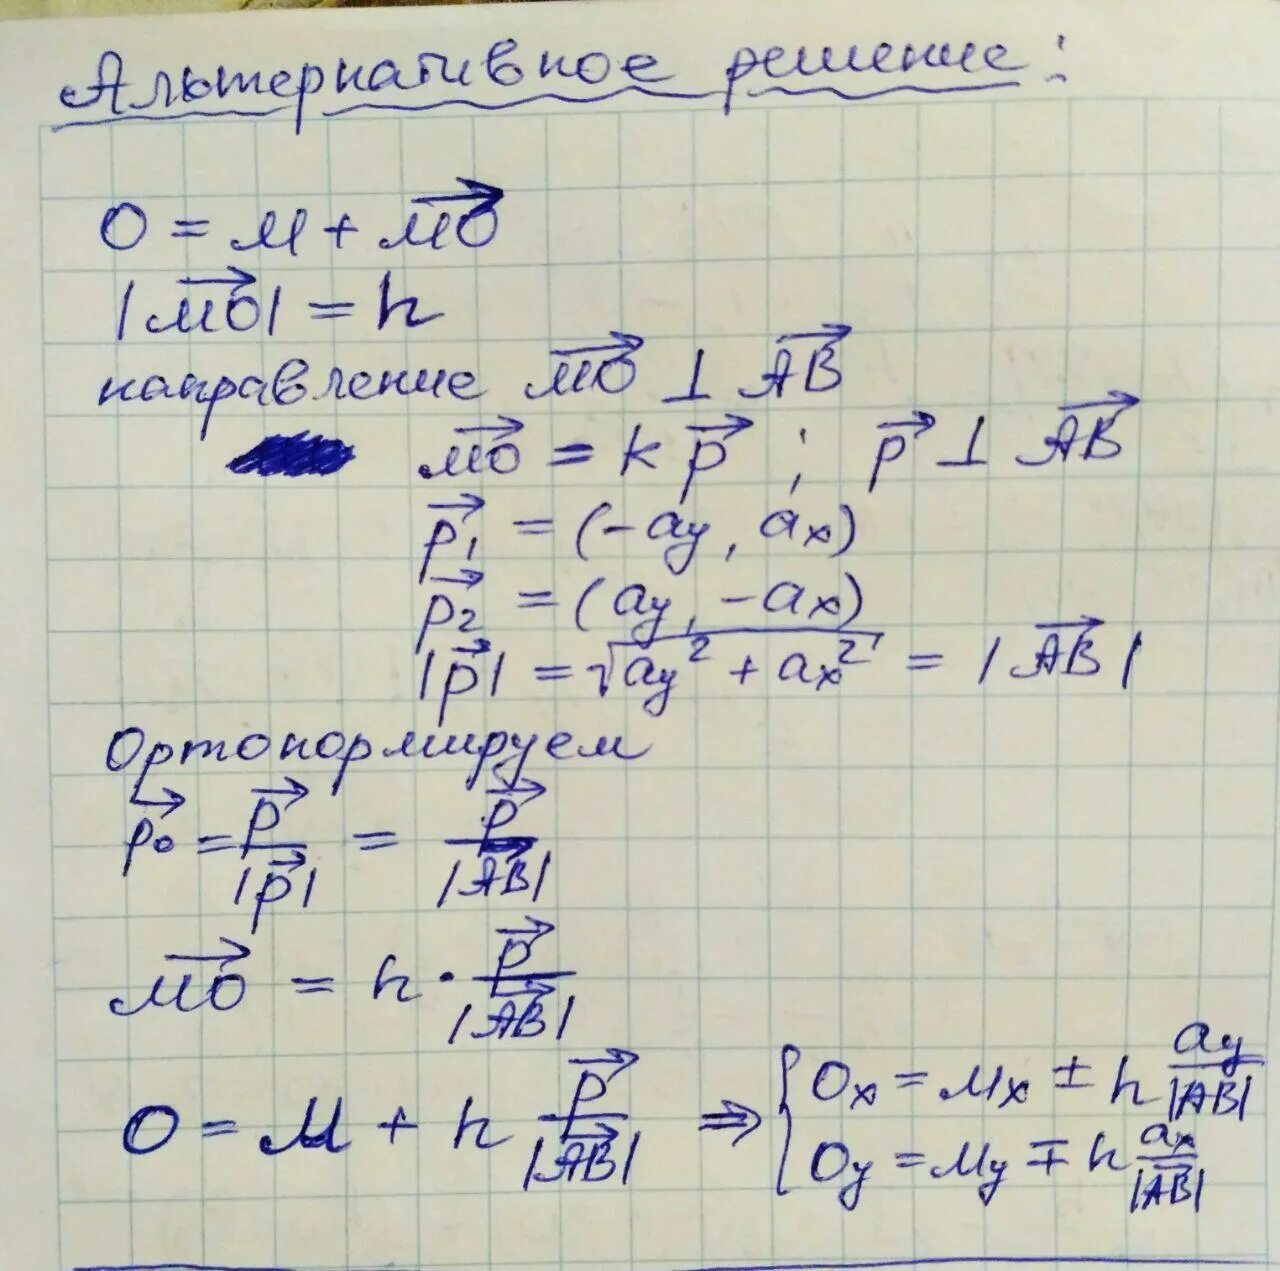 Альтернативное решение:
O = M + \vec{MO}
|\vec{MO}| = h
направление \vec{MO} ⊥ \vec{AB}
\vec{MO} = k \vec{p} ; \vec{p} ⊥ \vec{AB}
\vec{p_1} = (-ay, ax)
\vec{p_2} = (ay, -ax)
|\vec{p}| = \sqrt{ay^2 + ax^2} = |\vec{AB}|
Ортонормируем
\vec{p_0} = \frac{\vec{p}}{|\vec{p}|} = \frac{\vec{p}}{|\vec{AB}|}
\vec{MO} = h · \frac{\vec{p}}{|\vec{AB}|}
O = M + h \frac{\vec{p}}{|\vec{AB}|} ⇒ { Ox = Mx ± h \frac{ay}{|\vec{AB}|}
Oy = My ∓ h \frac{ax}{|\vec{AB}|}